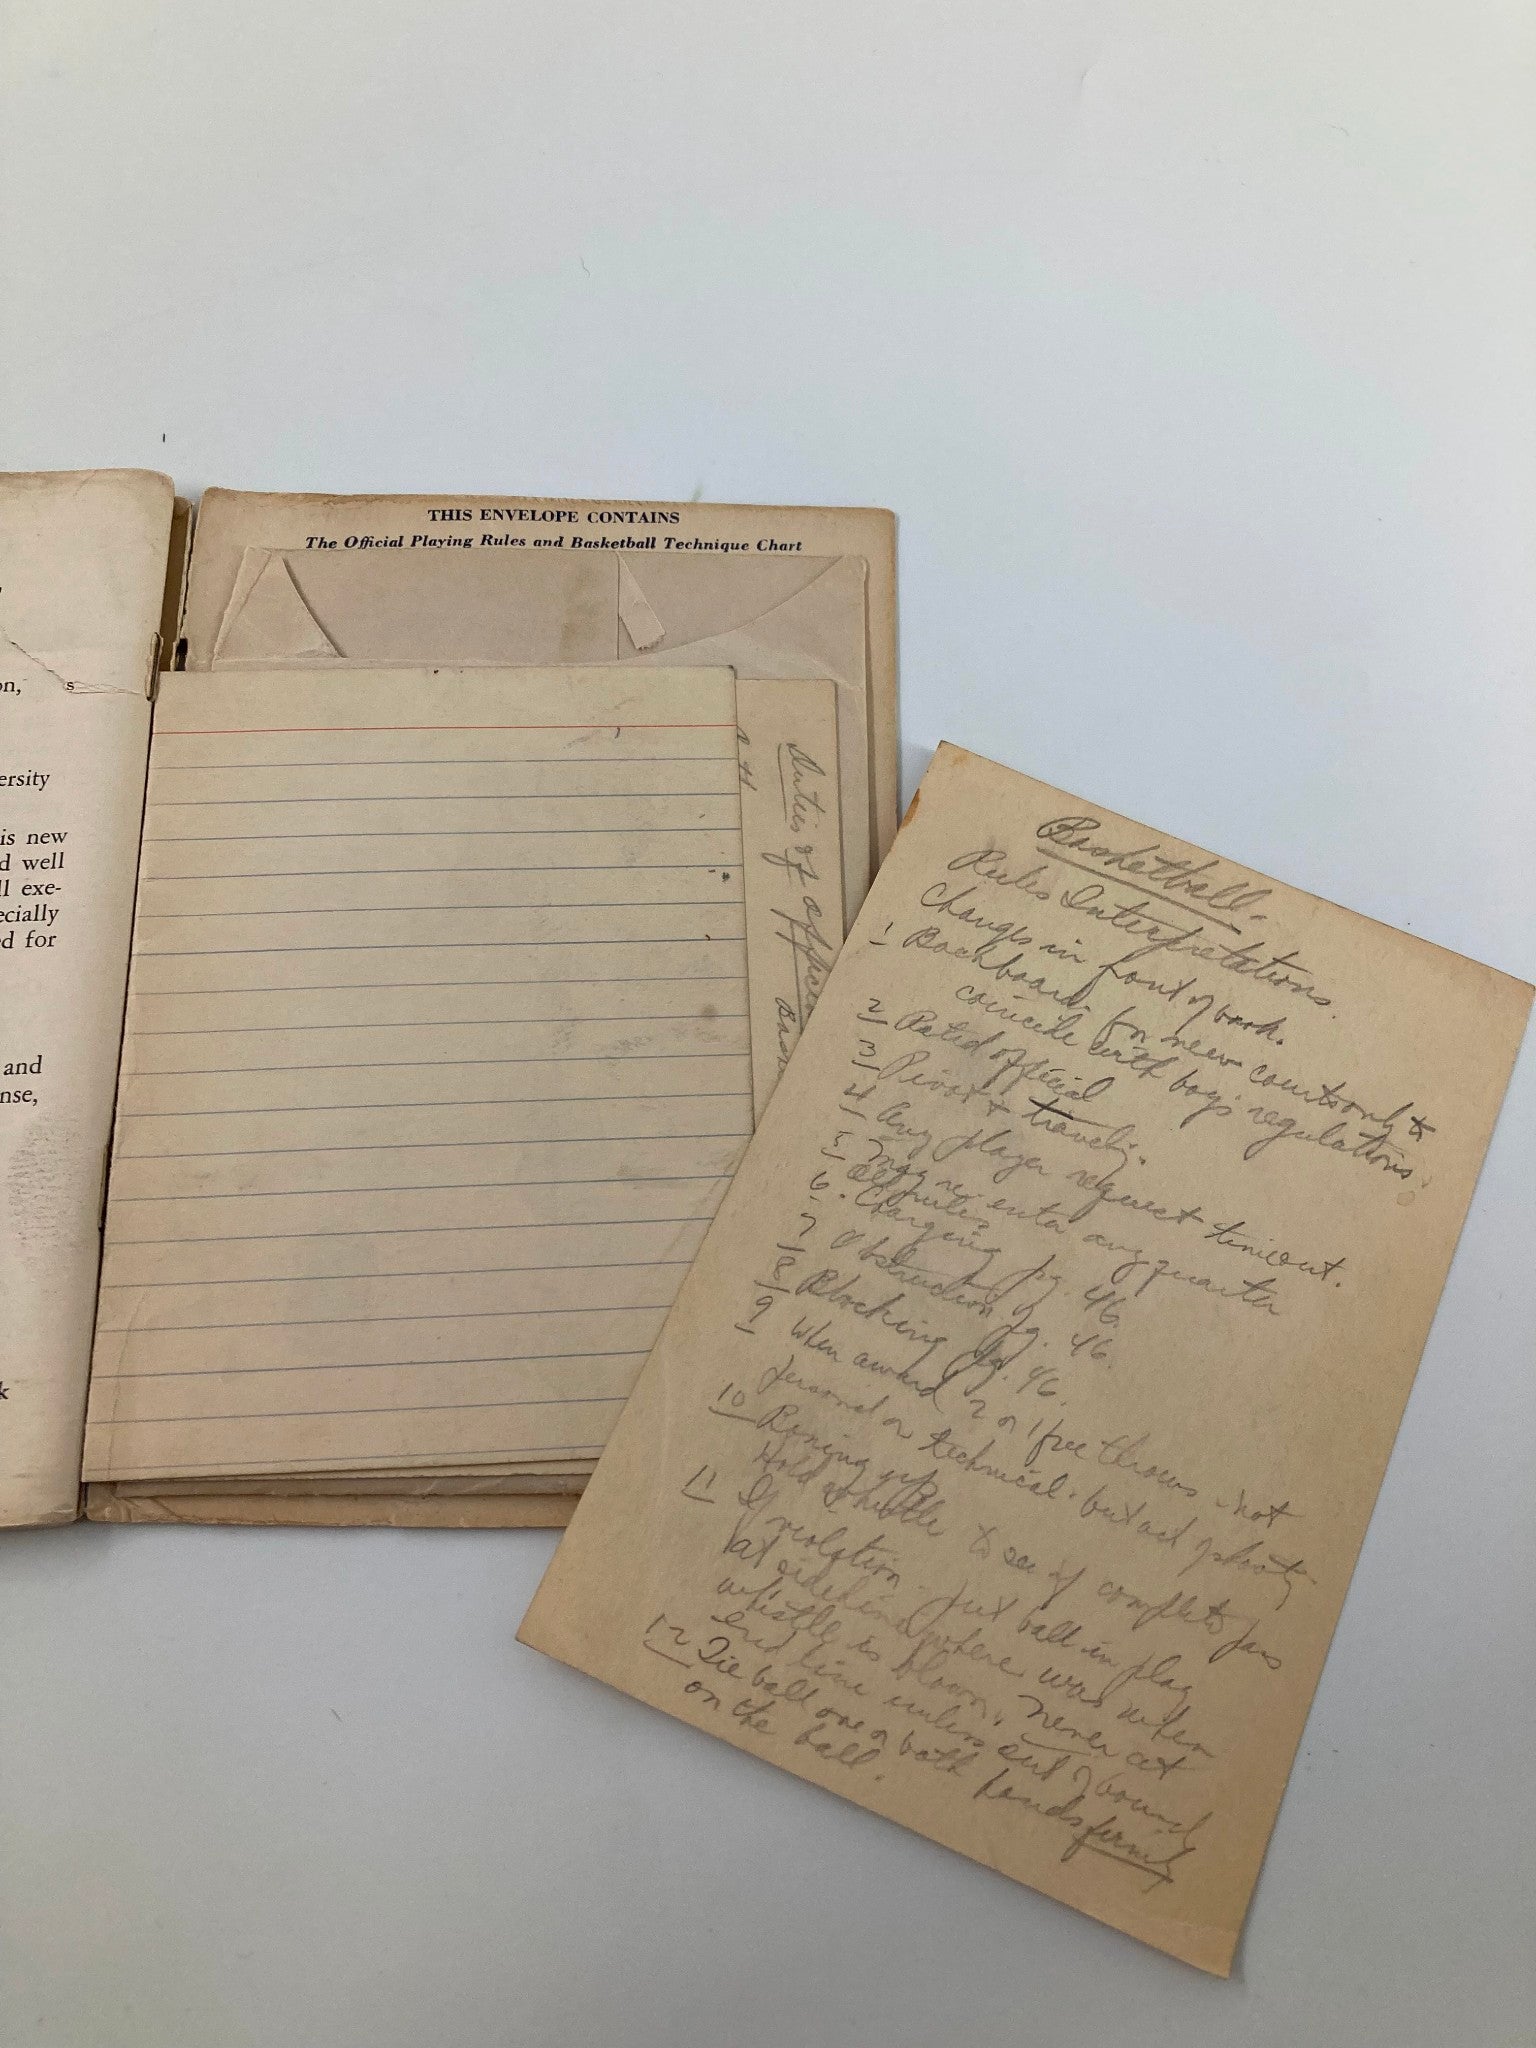 on, s
ersity
is new
d well
ll exe-
ecially
ed for
and
nse,
k
THIS ENVELOPE CONTAINS
The Official Playing Rules and Basketball Technique Chart
Duties of official
Bask
Basketball.
Rules Interpretations.
Changes in front of book.
1 Backboards for new courts only to
coincide with boys regulations.
2 Rated official
3 Pivot & travelg.
4 Any player request timeout.
5 May re-enter any quarter
All minutes
6. Charging pg. 46.
7 Obstruction pg. 46.
8 Blocking pg. 46.
9 When award 2 or 1 free throws - not
personal or technical. but act of shootg
10 Boxing up
Hold whistle to see if completes pass
11 If violation - put ball in play
at sideline where was when
whistle is blown. Never at
end line unless out of bounds
12 Tie ball one or both hands firmly
on the ball.